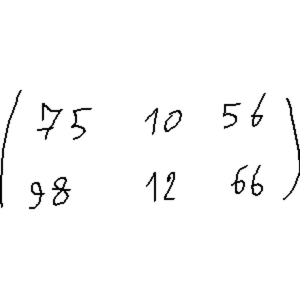 75 10 56
98 12 66